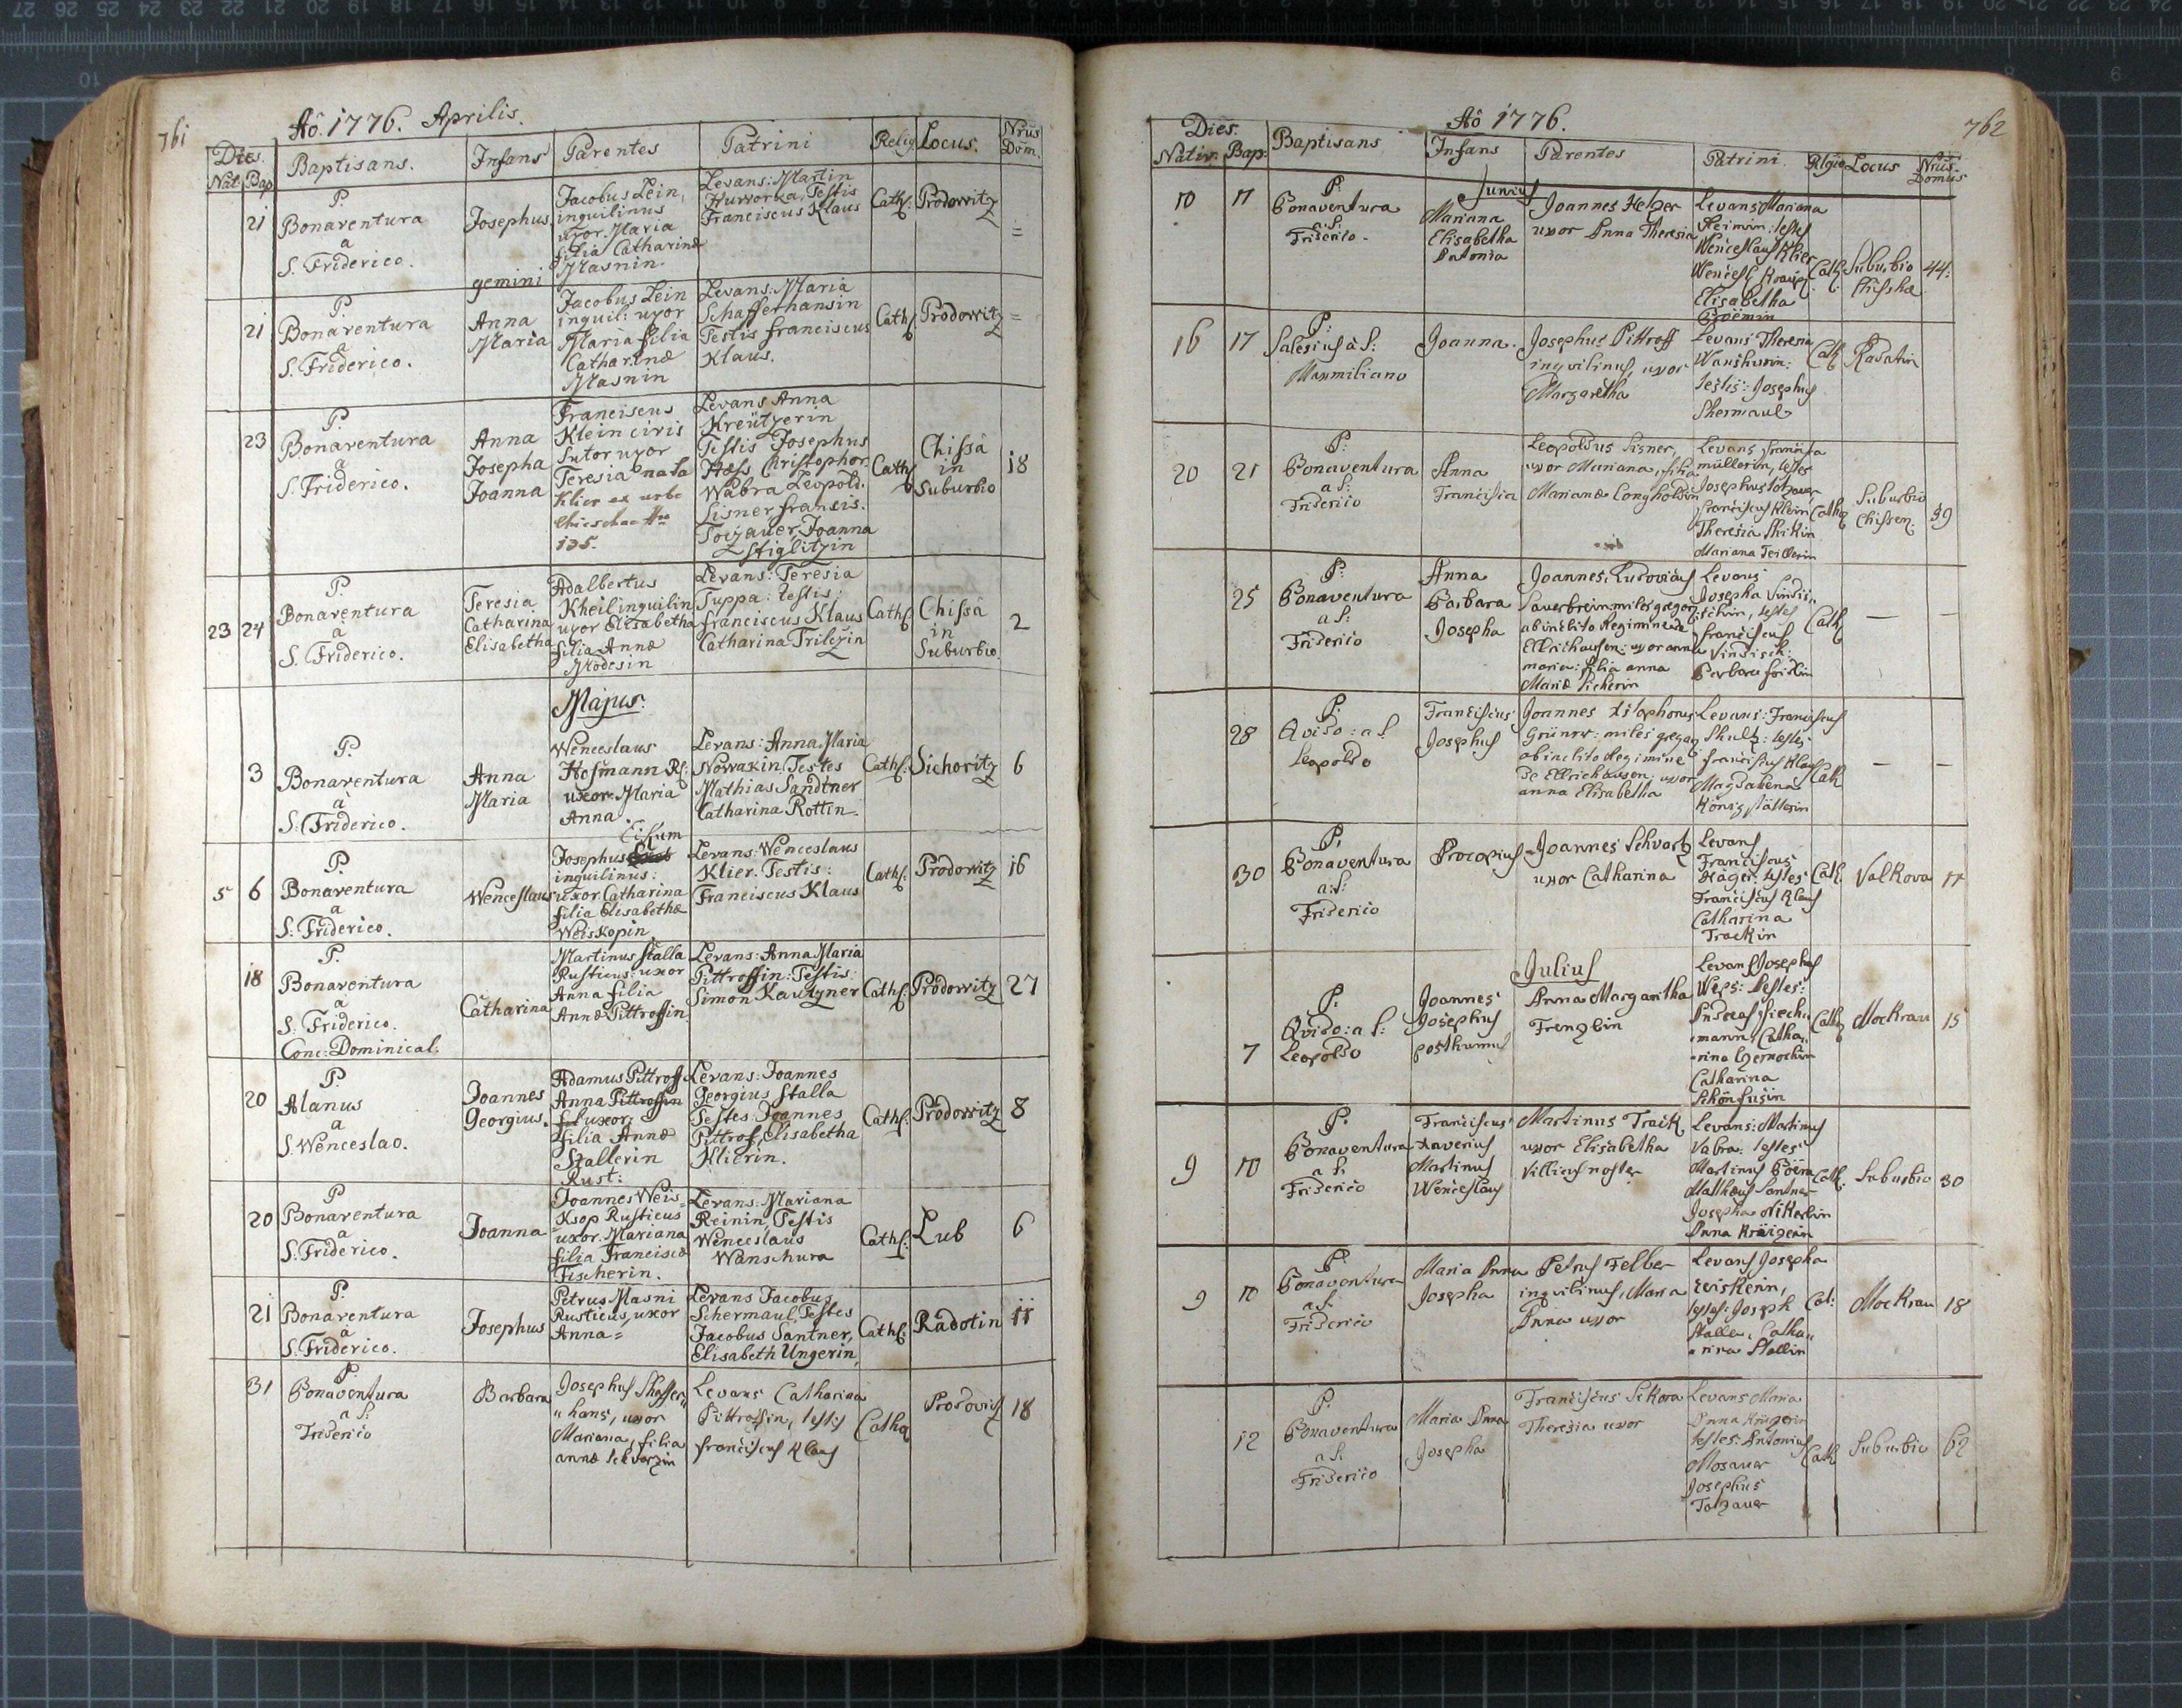 761
Aõ. 1776. Aprilis.
Dies.
Nat. Bap.
Baptisans.
Infans
Parentes
Patrini
Relig.
Locus.
Nrus Dom.
21
P.
Bonaventura
a
S. Friderico.
Josephus.
gemini
Jacobus Lein,
inquilinus
uxor. Maria
filia Catharinæ
Masnin.
Levans: Martin
Testis
Franciscus Klaus
Cath:
Prodowitz
=
21
P.
Bonaventura
a
S. Friderico.
Anna
Maria
Jacobus Lein
inquil: uxor
Maria filia
Catharinæ
Masnin
Levans: Maria
Schafferhansin
Testis franciscus
Klaus.
Cath:
Prodowitz
=
23
P.
Bonaventura
a
S. Friderico.
Anna
Josepha
Joanna
Franciscus
Klein civis
Sutor uxor
Teresia nata
Klier ex urbe
135.
Levans Anna
Kreützerin
Testis Josephus
Christophor.
Wabra Leopold.
Lisner, francis.
Joanna
Stiglitzin
Cath:
Chissa
in
Suburbio
18
23 24
P.
Bonaventura
a
S. Friderico.
Teresia
Catharina
Elisabetha
Adalbertus
Kheil inquilin
uxor Elisabetha
filia Annæ
Modesin
Levans: Teresia
Tuppa: testis:
franciscus Klaus
Catharina
Cath:
Chissa
in
Suburbio.
2
Majus:
3
P.
Bonaventura
à
S: Friderico.
Anna
Maria
Wenceslaus
Hofmann R:
uxor Maria
Anna.
Levans: Anna Maria
Nowakin. Testes
Mathias Sandtner
Catharina Rottin.
Cath:
Sichoritz
6
5 6
P.
Bonaventura
a
S: Friderico.
Wenceslaus
Josephus
inquilinus:
uxor. Catharina
filia Elisabethæ
Weiskopin
Levans: Wenceslaus
Klier. Testis:
Franciscus Klaus
Cath:
Prodowitz
16
18
P.
Bonaventura
a
S: Friderico.
Conc: Dominical:
Catharina
Martinus Stalla
Rusticus: uxor
Anna filia
Annæ Pittroffin
Levans: Anna Maria
Pittroffin: Testis:
Simon Kautzner
Cath:
Prodowitz
27
20
P.
Alanus
a
S. Wenceslao.
Joannes
Georgius.
Adamus Pittroff
Anna Pittroffin
uxor
filia Annæ
Stallerin
Rust:
Levans: Joannes
Georgius Stalla
Testes: Joannes
Pittrof, Elisabetha
Klierin.
Cath:
Prodowitz
8
20
P
Bonaventura
a
S: Friderico.
Joanna
Joannes Weis=
Kop Rusticus
uxor. Mariana
filia Franciscæ
Fischerin.
Levans: Mariana
Reinin, Testis
Wenceslaus
Wanschura
Cath:
Lub
6
21
P:
Bonaventura
a
S: Friderico.
Josephus
Petrus Masni
Rusticus, uxor
Anna=
Levans Jacobus
Schermaul, Testes
Jacobus Santner,
Elisabeth Ungerin,
Cath:
Radotin
11
31
P
Bonaventura
a S:
Friderico
Barbara
Josephus Shaffer„
„hans, uxor
Mariana, filia
annæ Schvarzin
Levans Catharina
Pittroffin, testis
franciscus Klaus
Catho
Prodovis
18
762
Aõ 1776.
Dies.
Nativ: Bap:
Baptisans
Infans
Parentes
Patrini
Rlgio
Locus
Nrus Domus
Junius
10 11
P:
Bonaventura
a S:
Friderico.
Mariana
Elisabetha
Antonia
Joannes Helzer
uxor Anna Theresia
Levans Mariana
Reiman: testes
Wenceslaus Klier
Elisabetha
Cath:
Suburbio
Chisshæ
44:
16 17
P:
Salesius à S:
Maxmiliano
Joanna.
Josephus Pittroff
inquilinus, uxor
Margaretha
Levans Theresia
Wanshurin:
testis: Josephus
Shermaul
Cath
Radatin
20 21
P:
Bonaventura
a S:
Friderico
Anna
Francisca
Leopoldus Lisner,
uxor Mariana, filia
Marianæ Longholdin
Levans
müllerin, testes
Josephus
franciscus Klein
Theresia
Mariana
Catho
Suburbio
Chissen.
59
25
P:
Bonaventura
a S:
Friderico
Anna
Barbara
Josepha
Joannes Ludovicus
Sauerbrein miles gregar:
ab inclito Regimine de
Ellrichausen: uxor anna
maria: filia anna
Mariæ
Levans
Josepha
testes
franciscus
Vindisch:
Barbara
Cath
—
—
28
P:
Qvido: a S:
Leopoldo
Franciscus
Josephus
Joannes
Grüner: miles gregar:
ab inclito Regimine
de Ellrichausen: uxor
anna Elisabetha
Levans: Franciscus
Shultz: testes
franciscus Klaus
Magdalena
Königstätterin
Cath
—
—
30
P,
Bonaventura
a S:
Friderico
Procopius
Joannes Schvartz
uxor Catharina
Levans
Franciscus
Häger: testes
Franciscus Klaus
Catharina
Trackin
Cath.
Valkova
11
Julius
7
P:
Qvido: a S:
Leopoldo
Joannes
Josephus
posthumus
Anna Margaritha
Frenzlin
Levans Josephus
Weps: testes:
Andreas
mann, Catha„
„rina
Catharina
Schönfusin
Cath
Mockrau
15
9 10
P:
Bonaventura
a S:
Friderico
Franciscus
Xaverius
Martinus
Wenceslaus
Martinus Traik
uxor Elisabetha
Villicus noster
Levans: Martinus
Vabra: testes
Martinus
Matthæus Santner
Josepha Nikerlin
Anna Krügerin
Cath.
Suburbio
30
9 10
P:
Bonaventura
a S:
Friderico
Maria Anna
Josepha
Petrus Felber
inqvilinus, Maria
Anna uxor
Levans Josepha
testes: Joseph
Stalla, Catha„
„rina Stallin
Cat:
Mockrau
18
12
P:
Bonaventura
a S:
Friderico
Maria Anna
Josepha
Franciscus Sikora
Theresia uxor
Levans Maria
Anna Krügerin
testes: Antonius
Mosauer
Josephus
Totzauer
Cath
Suburbio
62